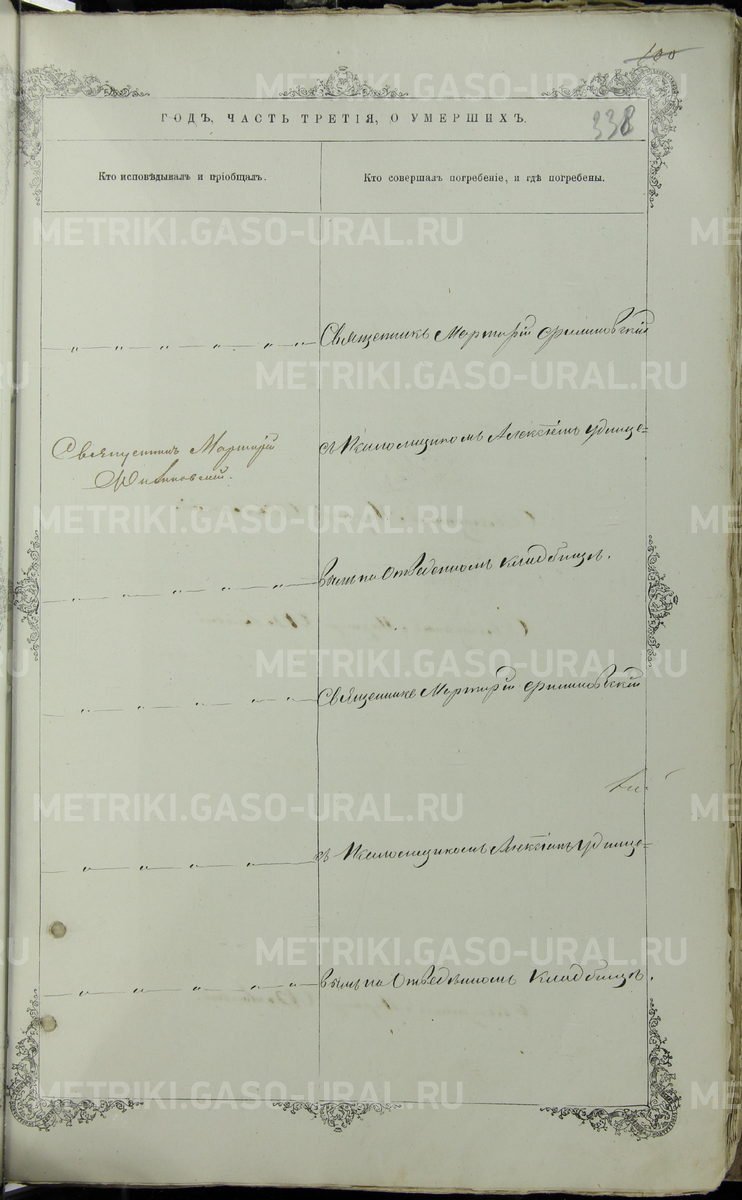 100
338
ГОДЪ, ЧАСТЬ ТРЕТІЯ, О УМЕРШИХЪ.
Кто исповѣдывалъ и пріобщалъ.
Кто совершалъ погребеніе, и гдѣ погребены.
Священникъ Мартирій Филиповскій
Священникъ Мартирій
Филиповскій.
съ Псаломщикомъ Алексѣемъ Удинце-
вымъ на Отведенномъ кладбищѣ.
Священникъ Мартирій Филиповскій
съ Псаломщикомъ Алексѣемъ Удинце-
вымъ на Отведенномъ кладбищѣ.
METRIKI.GASO-URAL.RU